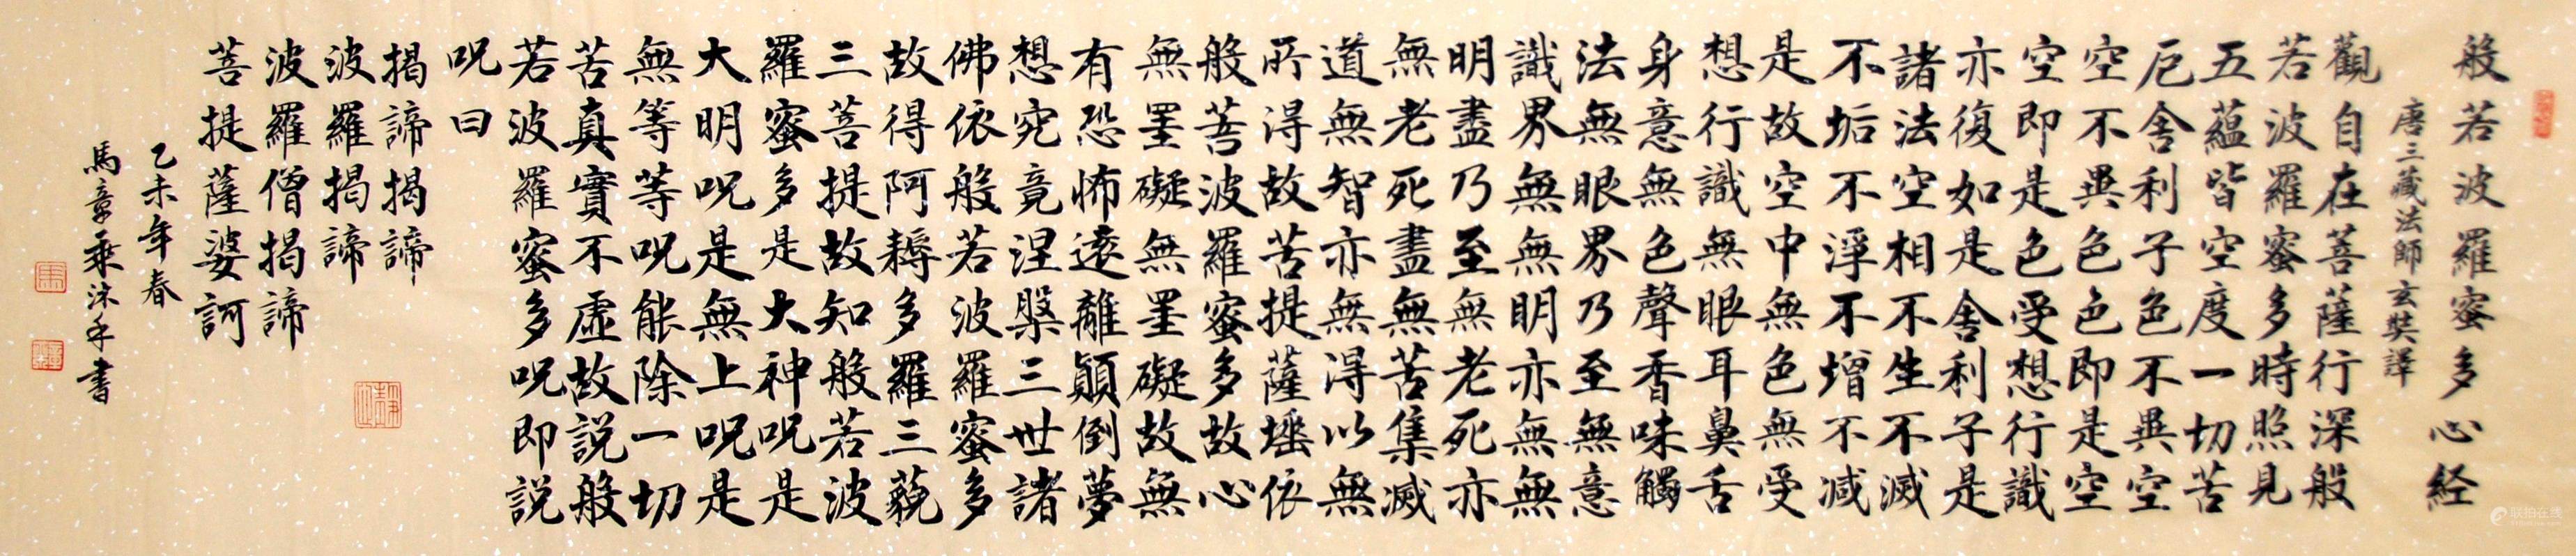 般若波羅蜜多心経
唐三藏法師玄奘譯
觀自在菩薩行深般
若波羅蜜多時照見
五蘊皆空度一切苦
厄舍利子色不異空
空不異色色即是空
空即是色受想行識
亦復如是舍利子是
諸法空相不生不滅
不垢不淨不增不减
是故空中無色無受
想行識無眼耳鼻舌
身意無色聲香味觸
法無眼界乃至無意
識界無無明亦無無
明盡乃至無老死亦
無老死盡無苦集滅
道無智亦無得以無
所得故苦提薩埵依
般菩波羅蜜多故心
無罣礙無罣礙故無
有恐怖遠離顛倒夢
想究竟涅槃三世諸
佛依般若波羅蜜多
故得阿耨多羅三藐
三菩提故知般若波
羅蜜多是大神呪是
大明呪是無上呪是
無等等呪能除一切
苦真實不虛故説般
若波羅蜜多呪即説
呪曰
揭諦揭諦
波羅揭諦
波羅僧揭諦
菩提薩婆訶
乙未年春
馬章乘沐手書
联拍在线